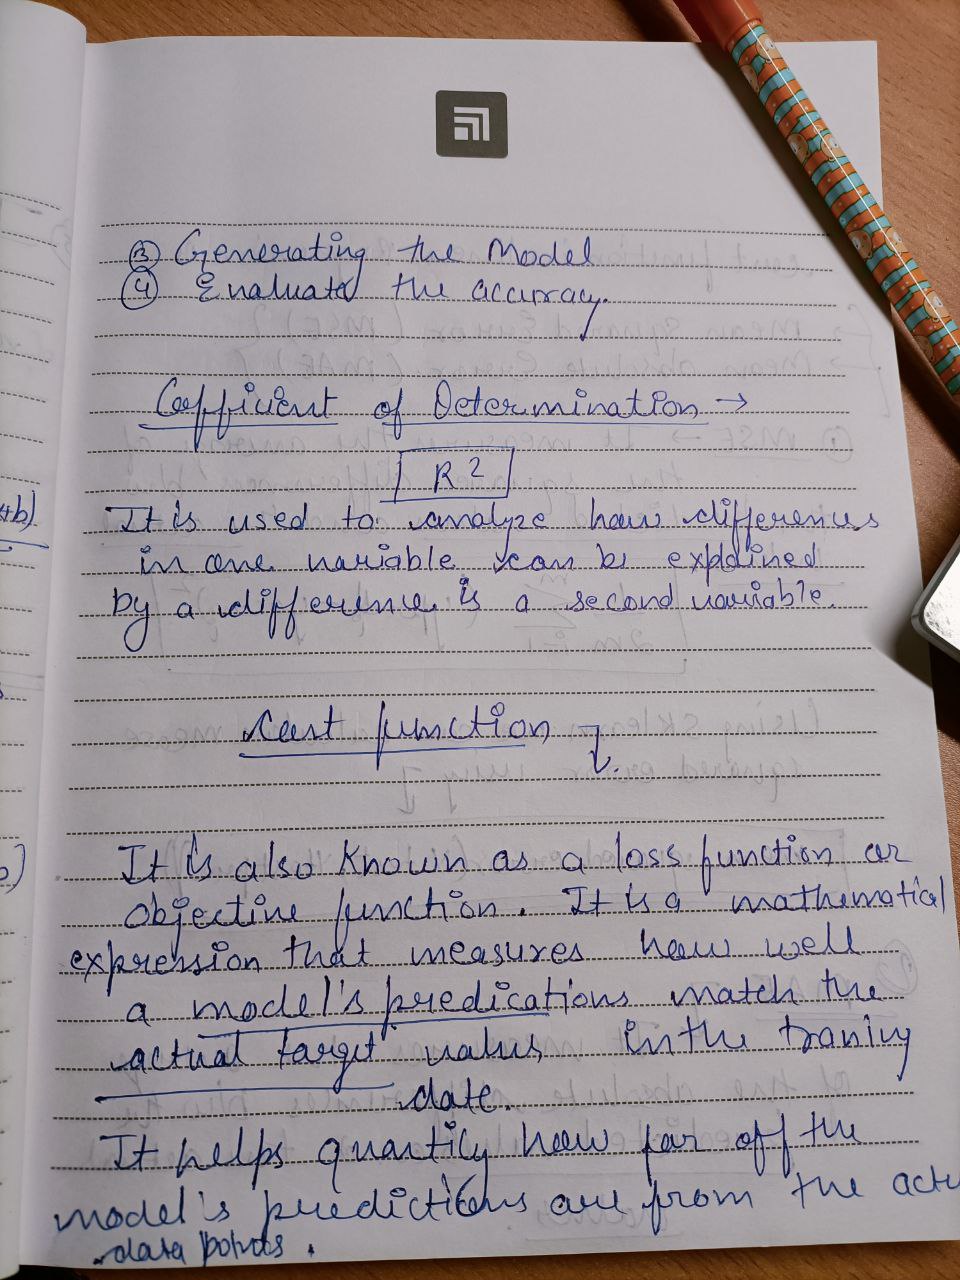 ③ Generating the Model
④ Evaluated the accuracy.
Coefficient of Determination →
R²
+b)
It is used to analyze how differences
in one variable can be explained
by a difference is a second variable.
Cost function
It is also known as a loss function or
objective function. It is a mathematical
expression that measures how well
a model's predications match the
actual target values in the traning
date.
It helps quantily how far off the
model's predictions are from the actu
data points.